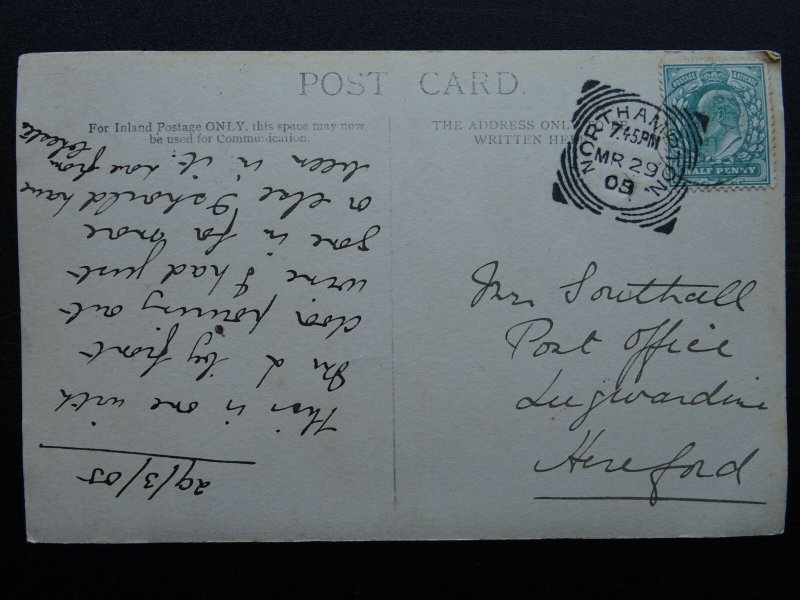 POST CARD.
For Inland Postage ONLY, this space may now
be used for Communication.
THE ADDRESS ONLY
WRITTEN HE
NORTHAMPTON
7.45PM
MR 29
05
POSTAGE & REVENUE
HALF PENNY
Mrs Southall
Post Office
Lugwardine
Hereford
29/3/05
This is one with
by front
door pouring out
wine I had just
gone in for more
or else I should have
been in it. love from